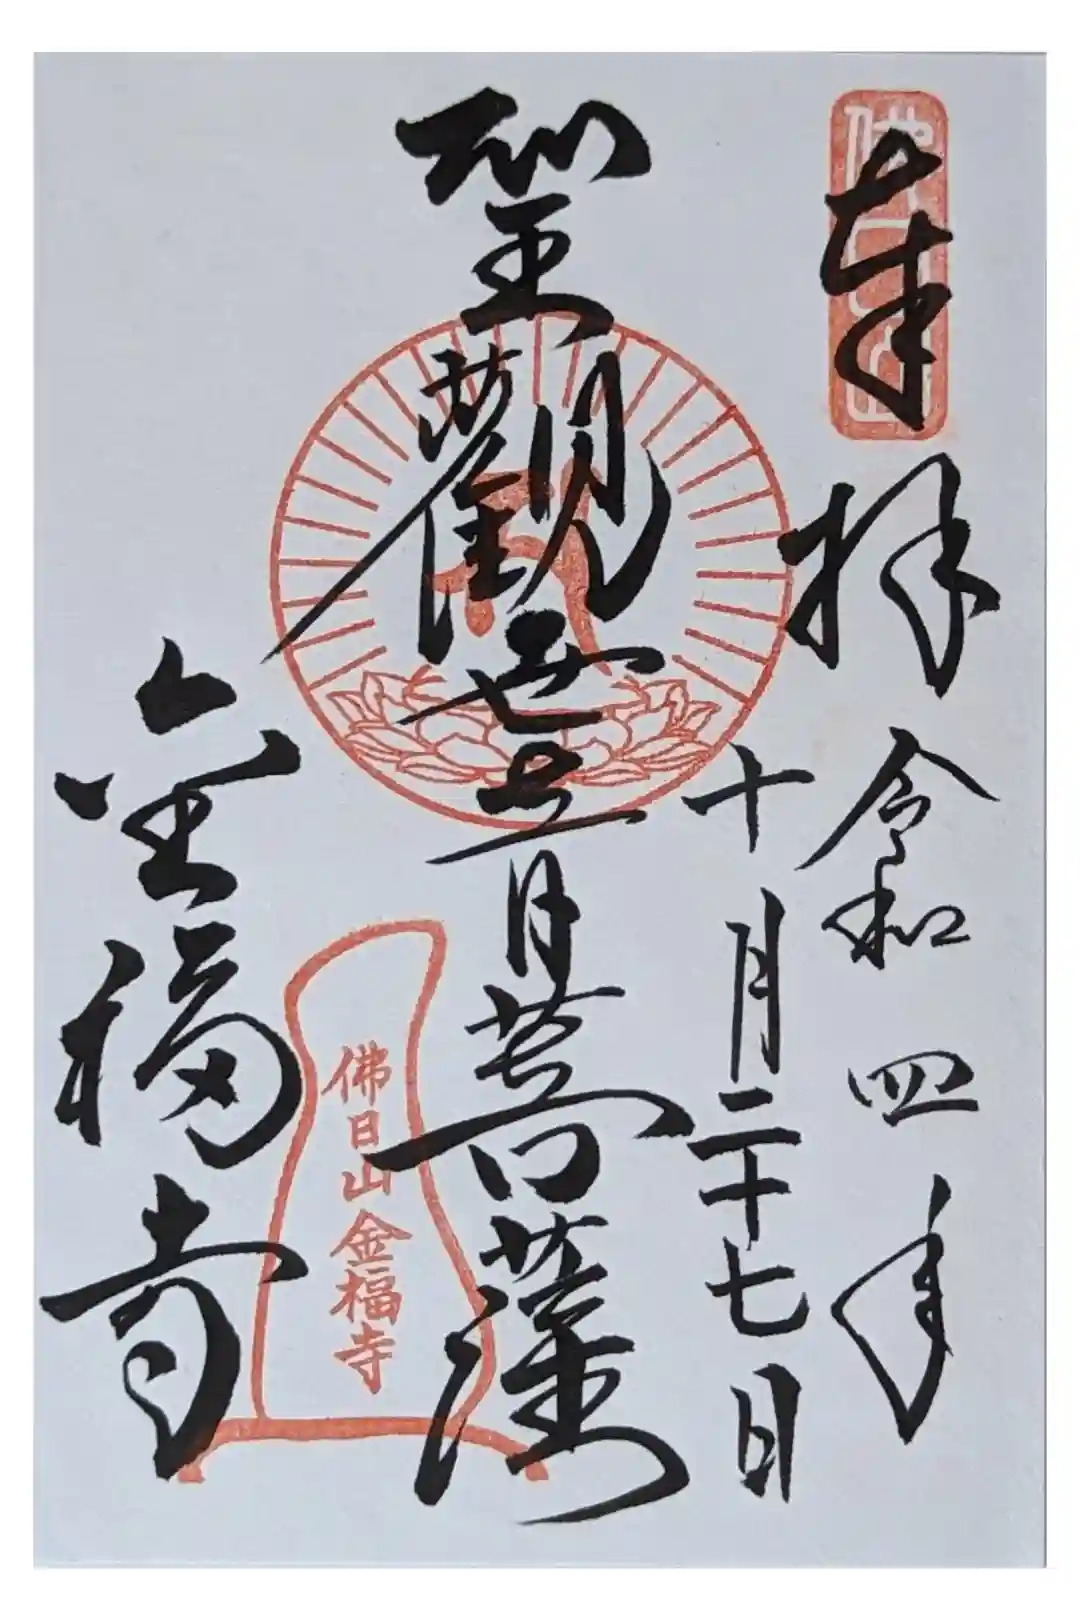 奉拝
令和四年
十月二十七日
聖観世音菩薩
金福寺
佛日山
佛日山金福寺